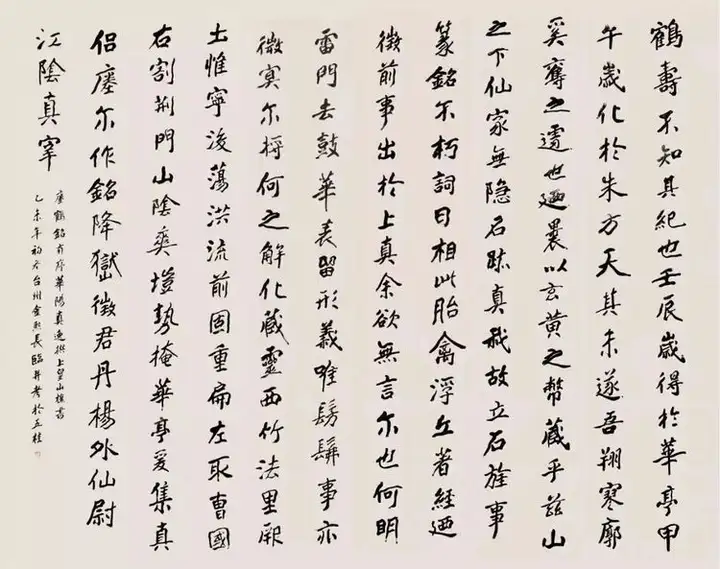 鶴壽不知其紀也壬辰歲得於華亭甲
午歲化於朱方天其未遂吾翔寥廓
奚奪之遽也廼裹以玄黃之幣藏乎茲山
之下仙家無隐石跡真我故立石旌事
篆銘不朽詞曰相此胎禽浮丘著經廼
徵前事出於上真余欲無言尔也何明
雷門去鼓華表留形義唯髣髴事亦
微冥尔將何之解化藏靈西竹法里厥
土惟寧後蕩洪流前固重扃左取曹國
右割荆門山陰爽塏勢掩華亭爰集真
侣瘞尔作銘降嶽徵君丹楊外仙尉
江陰真宰
瘞鶴銘有序華陽真逸撰上皇山樵書
乙未年初冬台州金熙長臨并考於五桂